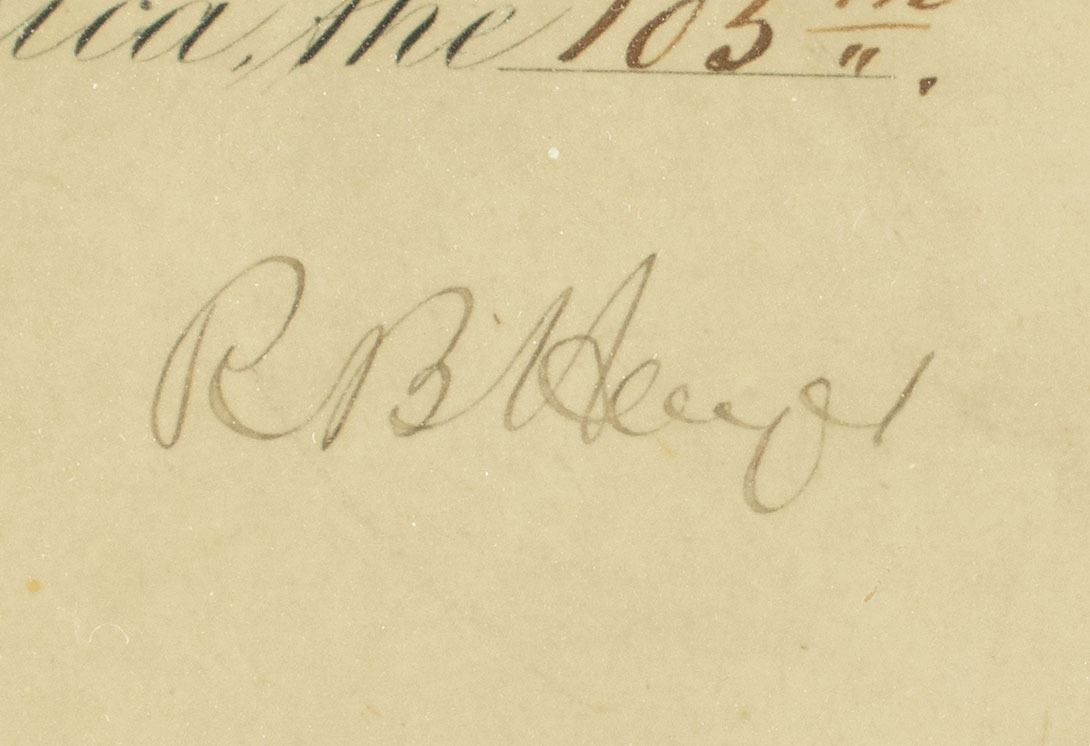 ica, the 105th.
R B Hayes